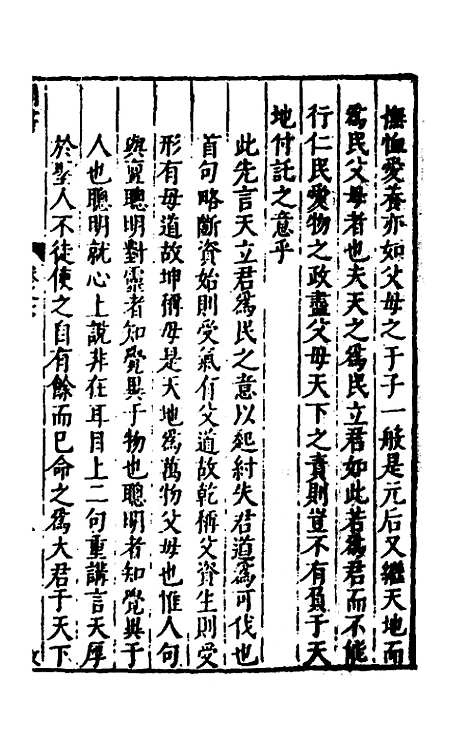 撫恤愛養亦如父母之于子一般是元后又繼天地而
爲民父母者也夫天之爲民立君如此若爲君而不能
行仁民愛物之政盡父母天下之責則豈不有負于天
地付託之意乎
此先言天立君爲民之意以起紂失君道爲可伐也
首句略斷資始則受氣有父道故乾稱父資生則受
形有母道故坤稱母是天地爲萬物父母也惟人句
與亶聰明對靈者知覺異于物也聰明者知覺異于
人也聰明就心上說非在耳目上二句重講言天厚
於聖人不徒使之自有餘而已命之爲大君于天下